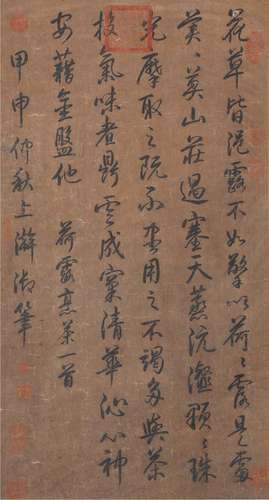 花草皆浥露不如擎以荷荷露見處
莫莫山莊過塞天蒸沆瀣顆顆珠
光摩取之既不盡用之不竭多與茶
投氣味煮鼎雲成窠清華沁心神
安藉金盤他 荷露烹茶一首
甲申仲秋上澣御筆